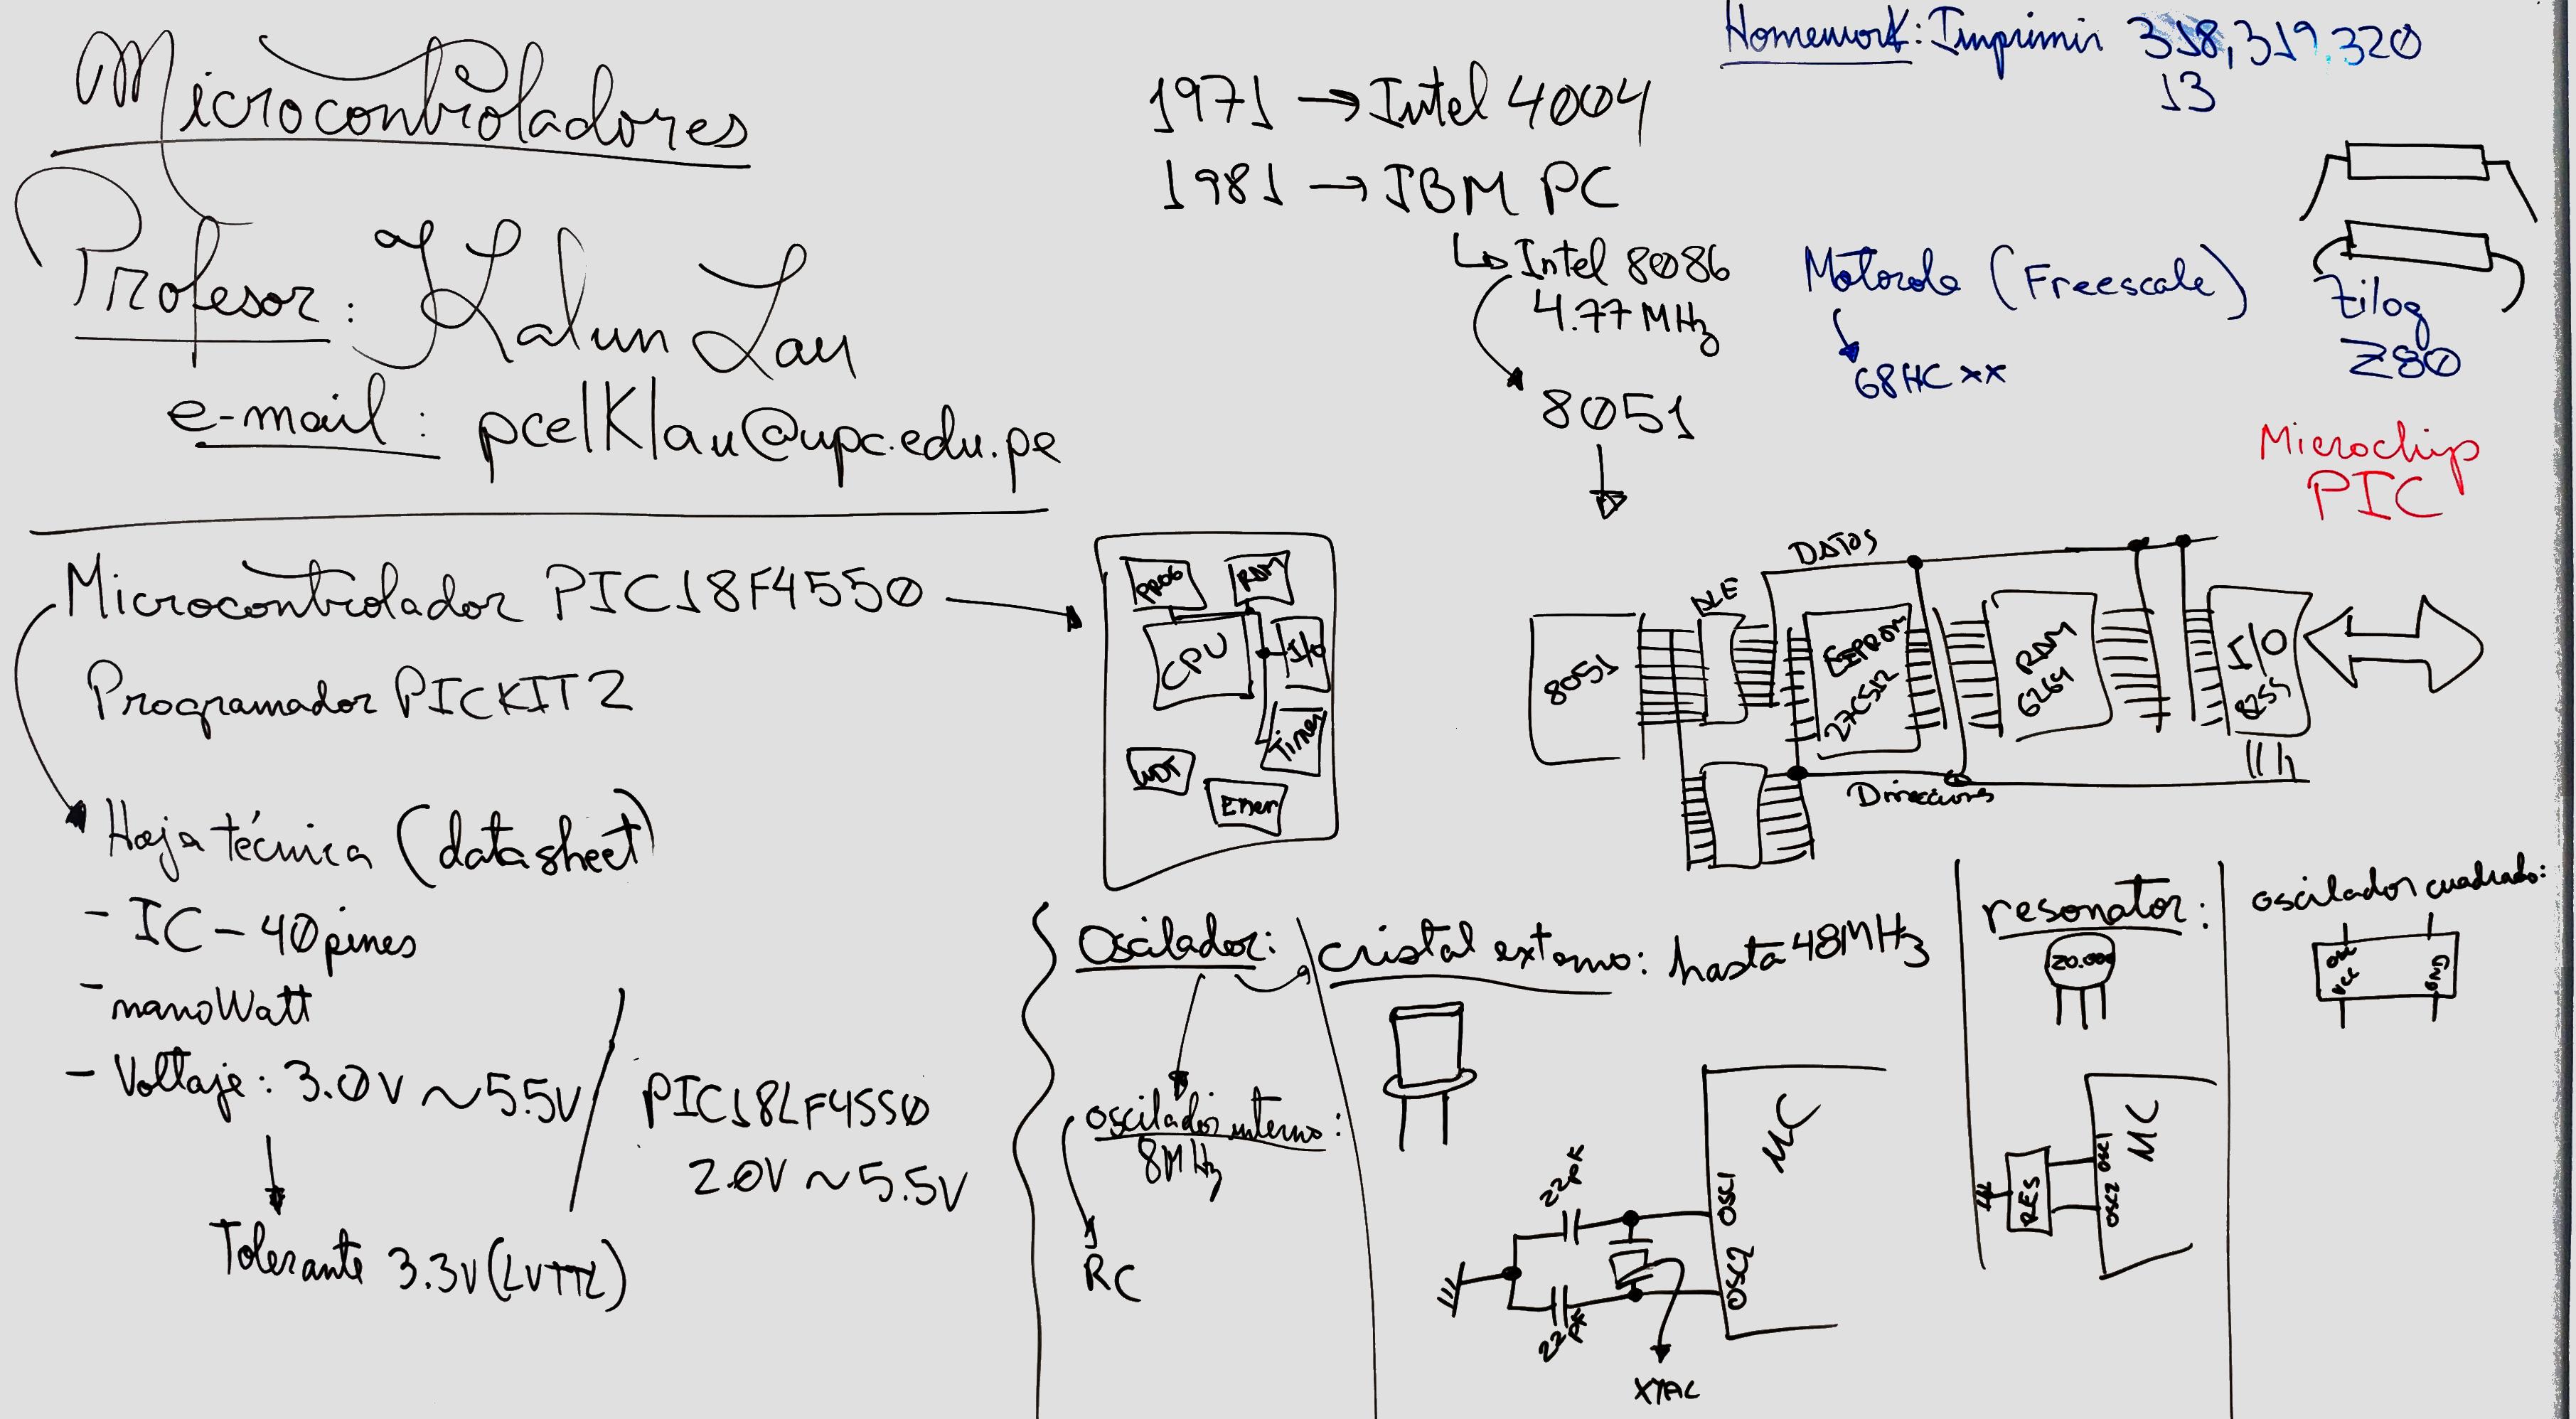 Microcontroladores
Profesor: Kalun Lau
e-mail: pcelklau@upc.edu.pe
Homework: Imprimir 318, 319, 320
13
1971 → Intel 4004
1981 → IBM PC
↳ Intel 8086
4.77 MHz
8051
Motorola (Freescale)
68HCxx
Zilog
Z80
Microchip
PIC
Microcontrolador PIC18F4550
Programador PICKIT2
Hoja técnica (datasheet)
- IC - 40 pines
- nanoWatt
- Voltaje: 3.0V ~ 5.5V
Tolerante 3.3V (LVTTL)
PIC18LF4550
2.0V ~ 5.5V
PROG
RAM
CPU
I/O
Timer
WDT
8051
ALE
DATOS
EEPROM
27C512
RAM
6264
I/O
8255
Direcciones
Oscilador:
oscilador interno:
8MHz
RC
cristal externo: hasta 48MHz
22pF
22pF
XTAL
OSC1
OSC2
MC
resonator:
20.000
RES
OSC1
OSC2
MC
oscilador cuadrado:
OUT
VCC
GND